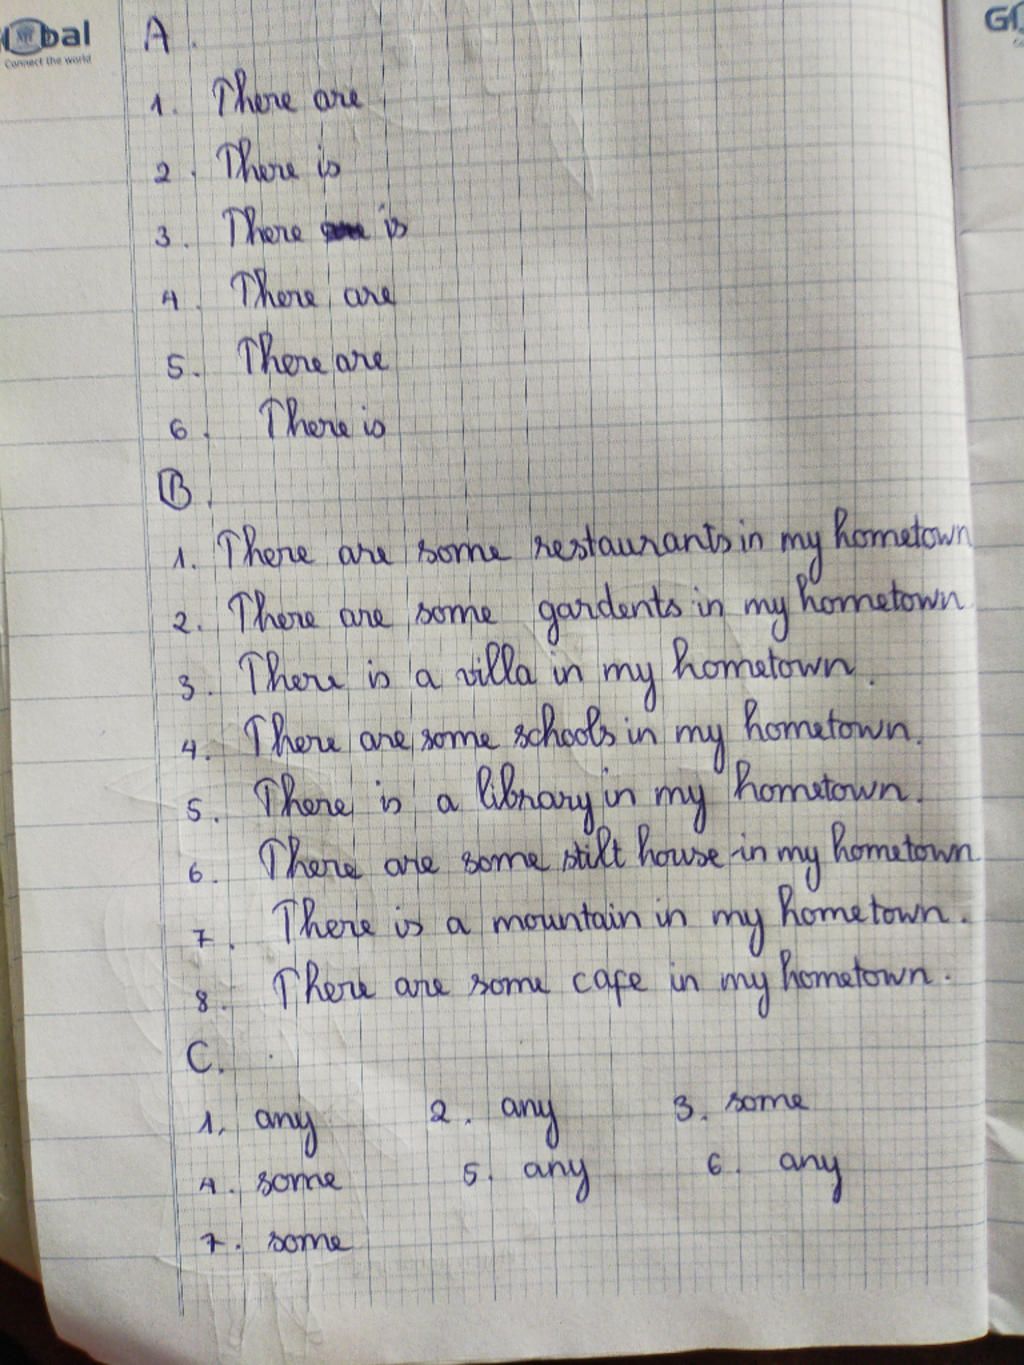 Global
Connect the world
A.
1. There are
2. There is
3. There is
4. There are
5. There are
6. There is
B.
1. There are some restaurants in my hometown
2. There are some gardents in my hometown
3. There is a villa in my hometown.
4. There are some schools in my hometown.
5. There is a library in my hometown.
6. There are some stilt house in my hometown
7. There is a mountain in my hometown.
8. There are some cafe in my hometown.
C.
1. any 2. any 3. some
4. some 5. any 6. any
7. some